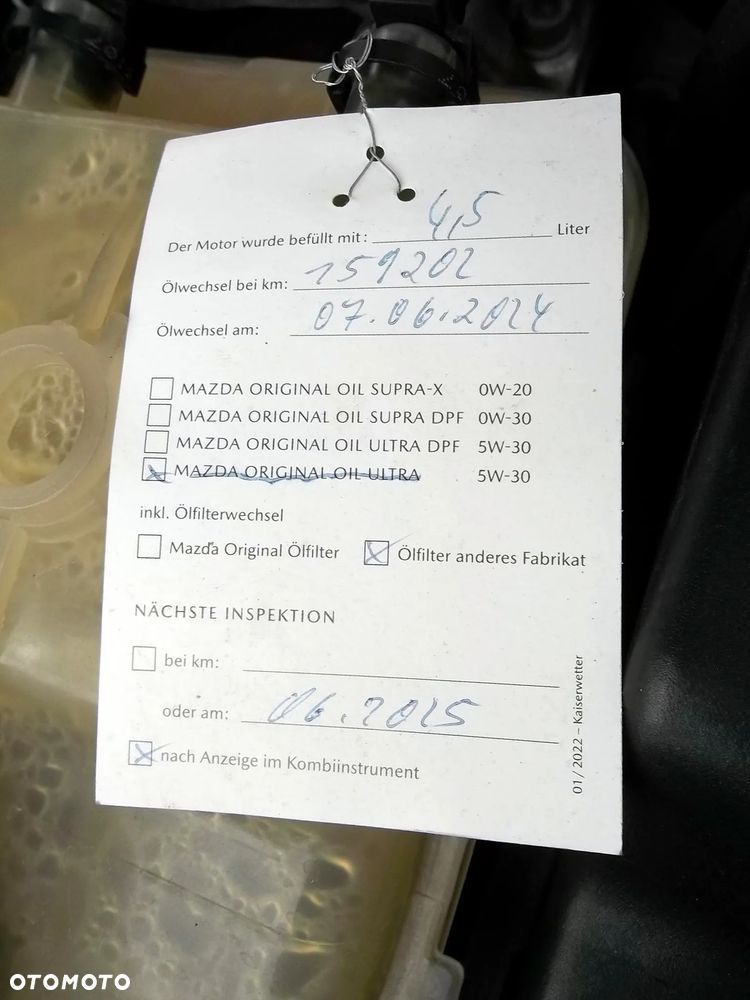 Der Motor wurde befüllt mit: 4,5 Liter
Ölwechsel bei km: 159202
Ölwechsel am: 07.06.2024
MAZDA ORIGINAL OIL SUPRA-X 0W-20
MAZDA ORIGINAL OIL SUPRA DPF 0W-30
MAZDA ORIGINAL OIL ULTRA DPF 5W-30
MAZDA ORIGINAL OIL ULTRA 5W-30
inkl. Ölfilterwechsel
Mazda Original Ölfilter Ölfilter anderes Fabrikat
NÄCHSTE INSPEKTION
bei km:
oder am: 06.2025
nach Anzeige im Kombiinstrument
01/2022 – Kaiserwetter
OTOMOTO